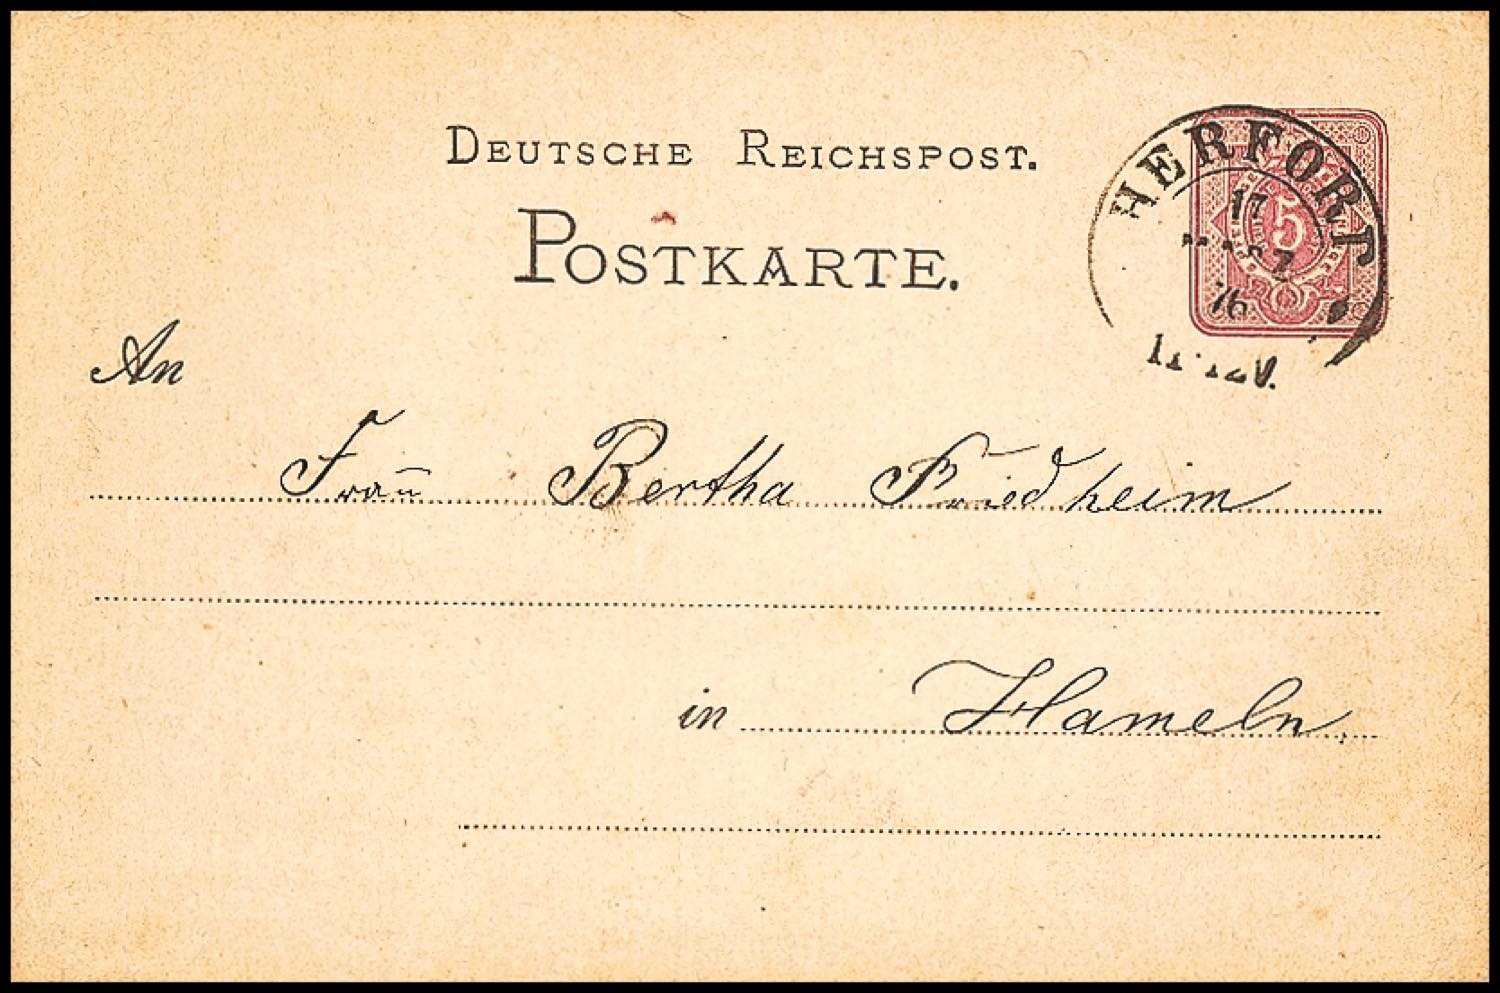 DEUTSCHE REICHSPOST.
POSTKARTE.
HERFORT
17
5
76
An
Frau Bertha Friedheim
in Hameln.